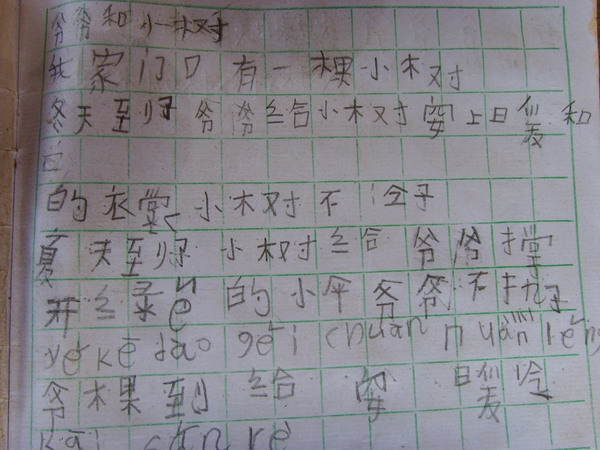 爷爷和小树
我家门口有一棵小树
冬天到了爷爷给小树穿上暖和
的衣裳小树不冷了
夏天到了小树给爷爷撑
开绿è的小伞爷爷不热了
yé kē dào gěi chuān nuǎn lěng
爷棵到给穿暖冷
kāi sǎn rè